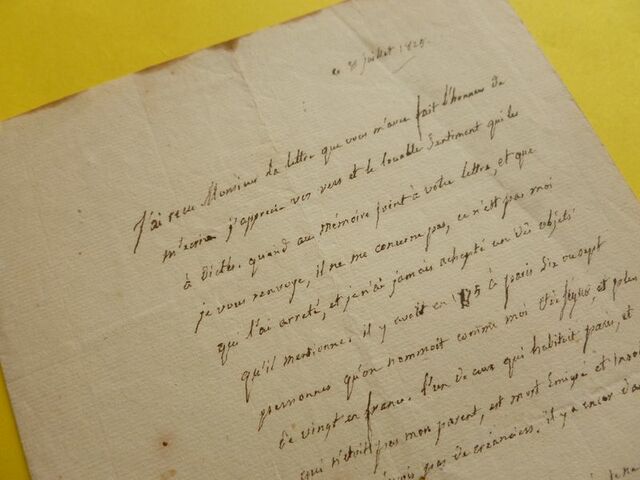 ce 8 juillet 1825.
J'ai reçu Monsieur la lettre que vous m'avez fait l'honneur de
m'écrire j'apprecie vos vers et le louable sentiment qui les
à dictés. quand au mémoire joint à votre lettre, et que
je vous renvoye, il ne me concerne pas, ce n'est pas moi
qui l'ai arreté, et je n'ai jamais achepté un des objets
qu'il mentionne. il y avoit en à paris dix ou sept
personnes qu'on nommoit comme moi et plus
de vingt en france. l'un de ceux qui habitoit paris, et
qui n'etoit pas mon parent, est mort Emigré et
pas de créanciers. il y a encor